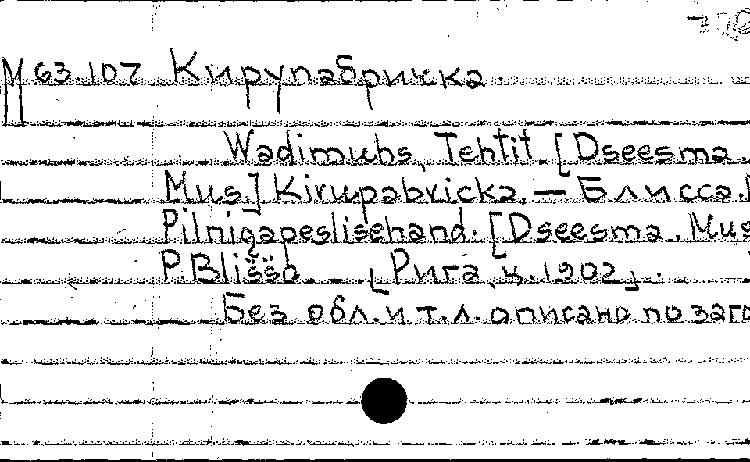 М 63.107 Кирупабрикка.
Wadimuhs, Tehtit. [Dseesma.
Mus.] Kirupabricka. — Блисса.
Pilnigapeslisehana. [Dseesma. Mus
P. Blissa. [Рига, ц. 1902].
Без обл. и т. л. описано по заго